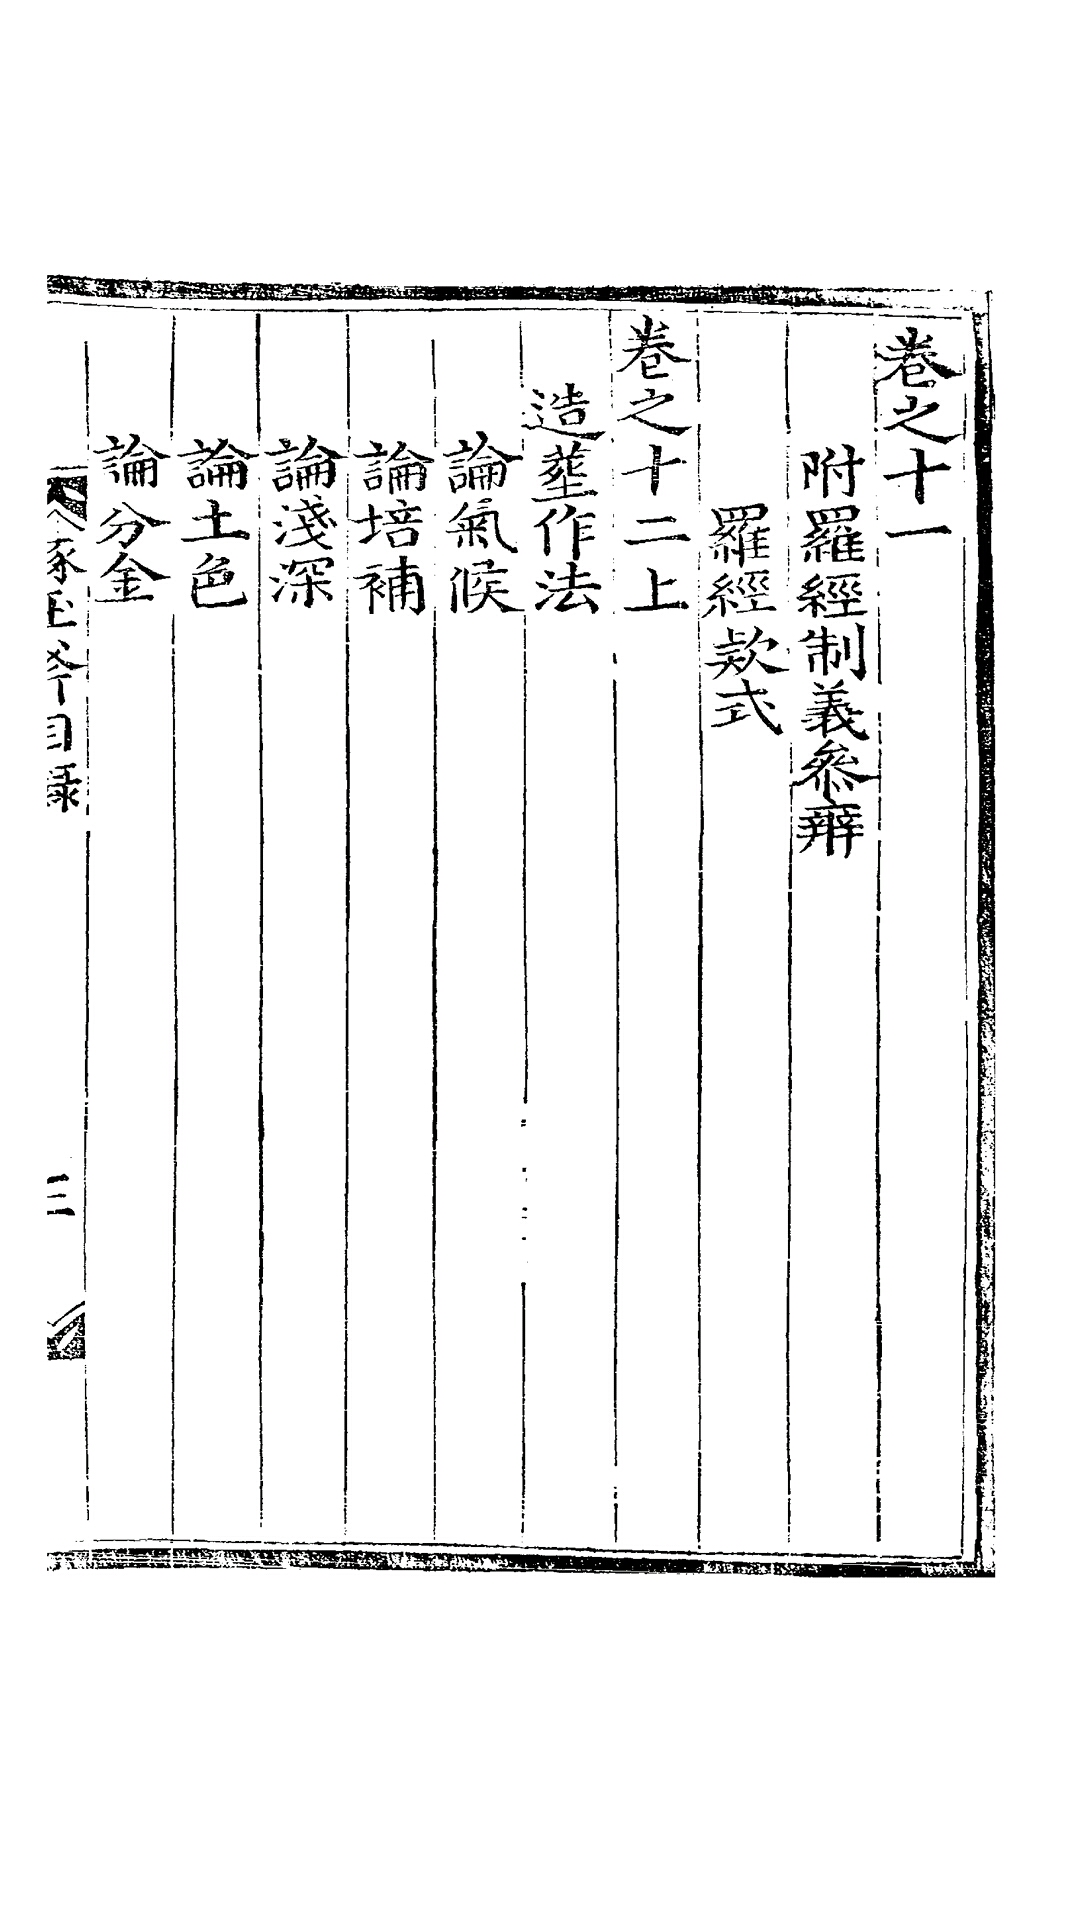 卷之十一
附羅經制義參辨
羅經欵式
卷之十二上
造塟作法
論氣候
論培補
論淺深
論土色
論分金
目錄
三